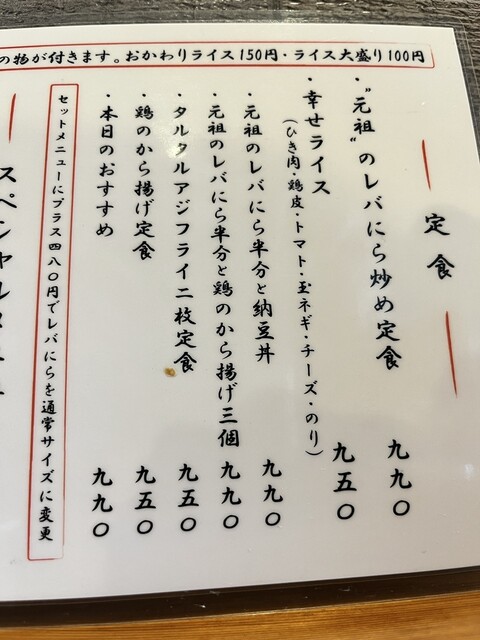 の物が付きます。おかわりライス150円・ライス大盛り100円
定食
・"元祖"のレバにら炒め定食 九九〇
・幸せライス 九五〇
(ひき肉・鶏皮・トマト・玉ネギ・チーズ・のり)
・元祖のレバにら半分と納豆丼 九九〇
・元祖のレバにら半分と鶏のから揚げ三個 九九〇
・タルタルアジフライ二枚定食 九五〇
・鶏のから揚げ定食 九五〇
・本日のおすすめ 九九〇
セットメニューにプラス四八〇円でレバにらを通常サイズに変更